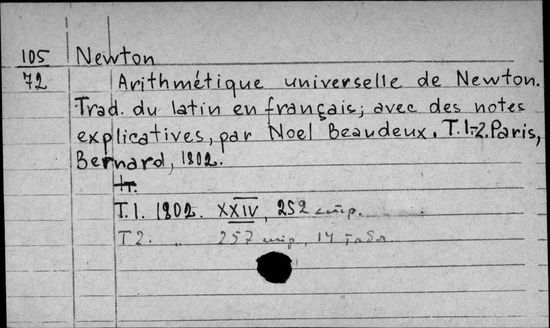 105
72
Newton
Arithmétique universelle de Newton.
Trad. du latin en français; avec des notes
explicatives, par Noel Beaudeux. T.1-2. Paris,
Bernard, 1802.
T.1. 1802. XXIV, 252 стр.
T 2. „ 257 стр., 14 табл.